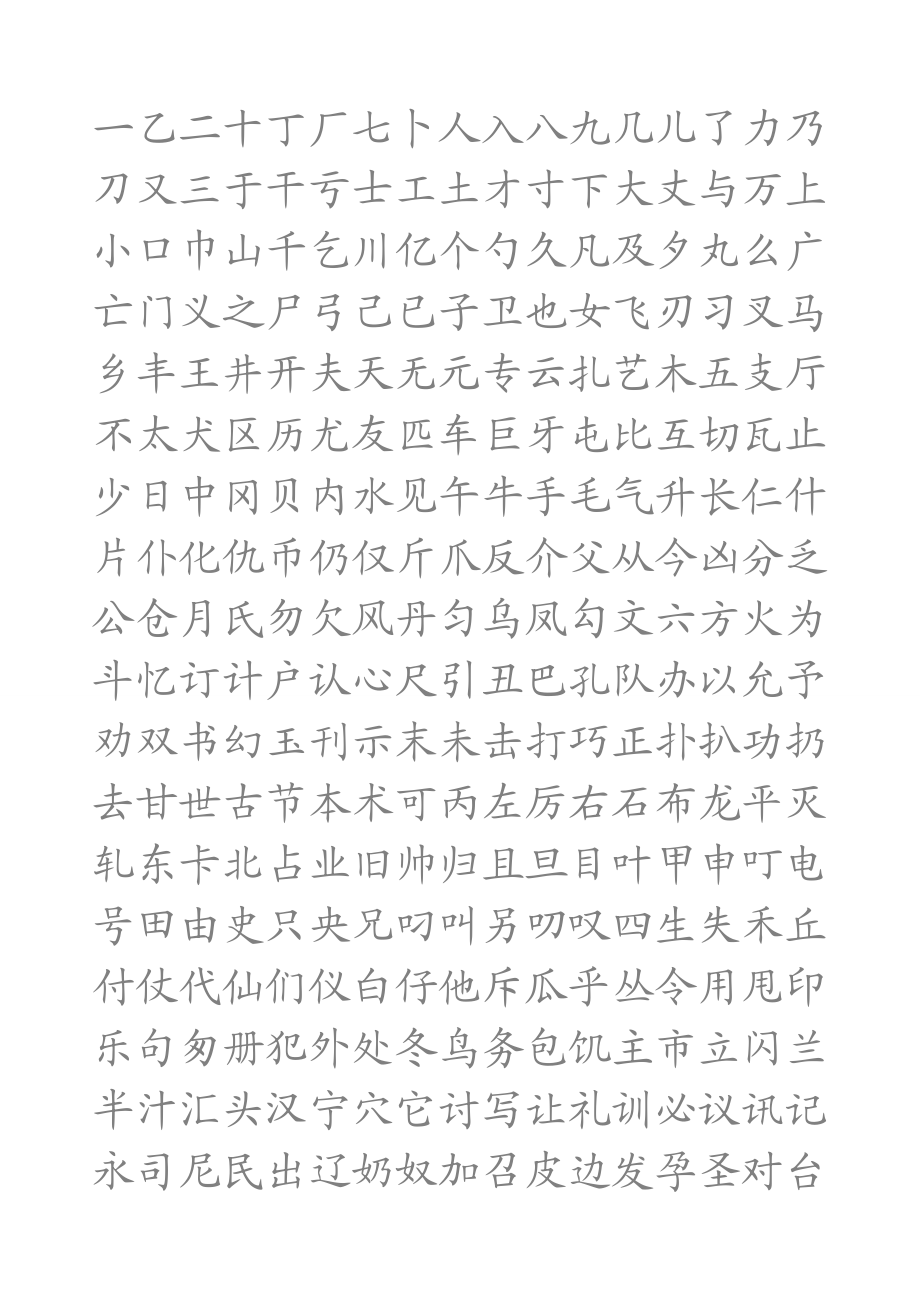 一乙二十丁厂七卜人入八九几儿了力乃
刀又三于干亏士工土才寸下大丈与万上
小口巾山千乞川亿个勺久凡及夕丸么广
亡门义之尸弓己已子卫也女飞刃习叉马
乡丰王井开夫天无元专云扎艺木五支厅
不太犬区历尤友匹车巨牙屯比互切瓦止
少日中冈贝内水见午牛手毛气升长仁什
片仆化仇币仍仅斤爪反介父从今凶分乏
公仓月氏勿欠风丹匀乌凤勾文六方火为
斗忆订计户认心尺引丑巴孔队办以允予
劝双书幻玉刊示末未击打巧正扑扒功扔
去甘世古节本术可丙左厉右石布龙平灭
轧东卡北占业旧帅归且旦目叶甲申叮电
号田由史只央兄叼叫另叨叹四生失禾丘
付仗代仙们仪白仔他斥瓜乎丛令用甩印
乐句匆册犯外处冬鸟务包饥主市立闪兰
半汁汇头汉宁穴它讨写让礼训必议讯记
永司尼民出辽奶奴加召皮边发孕圣对台